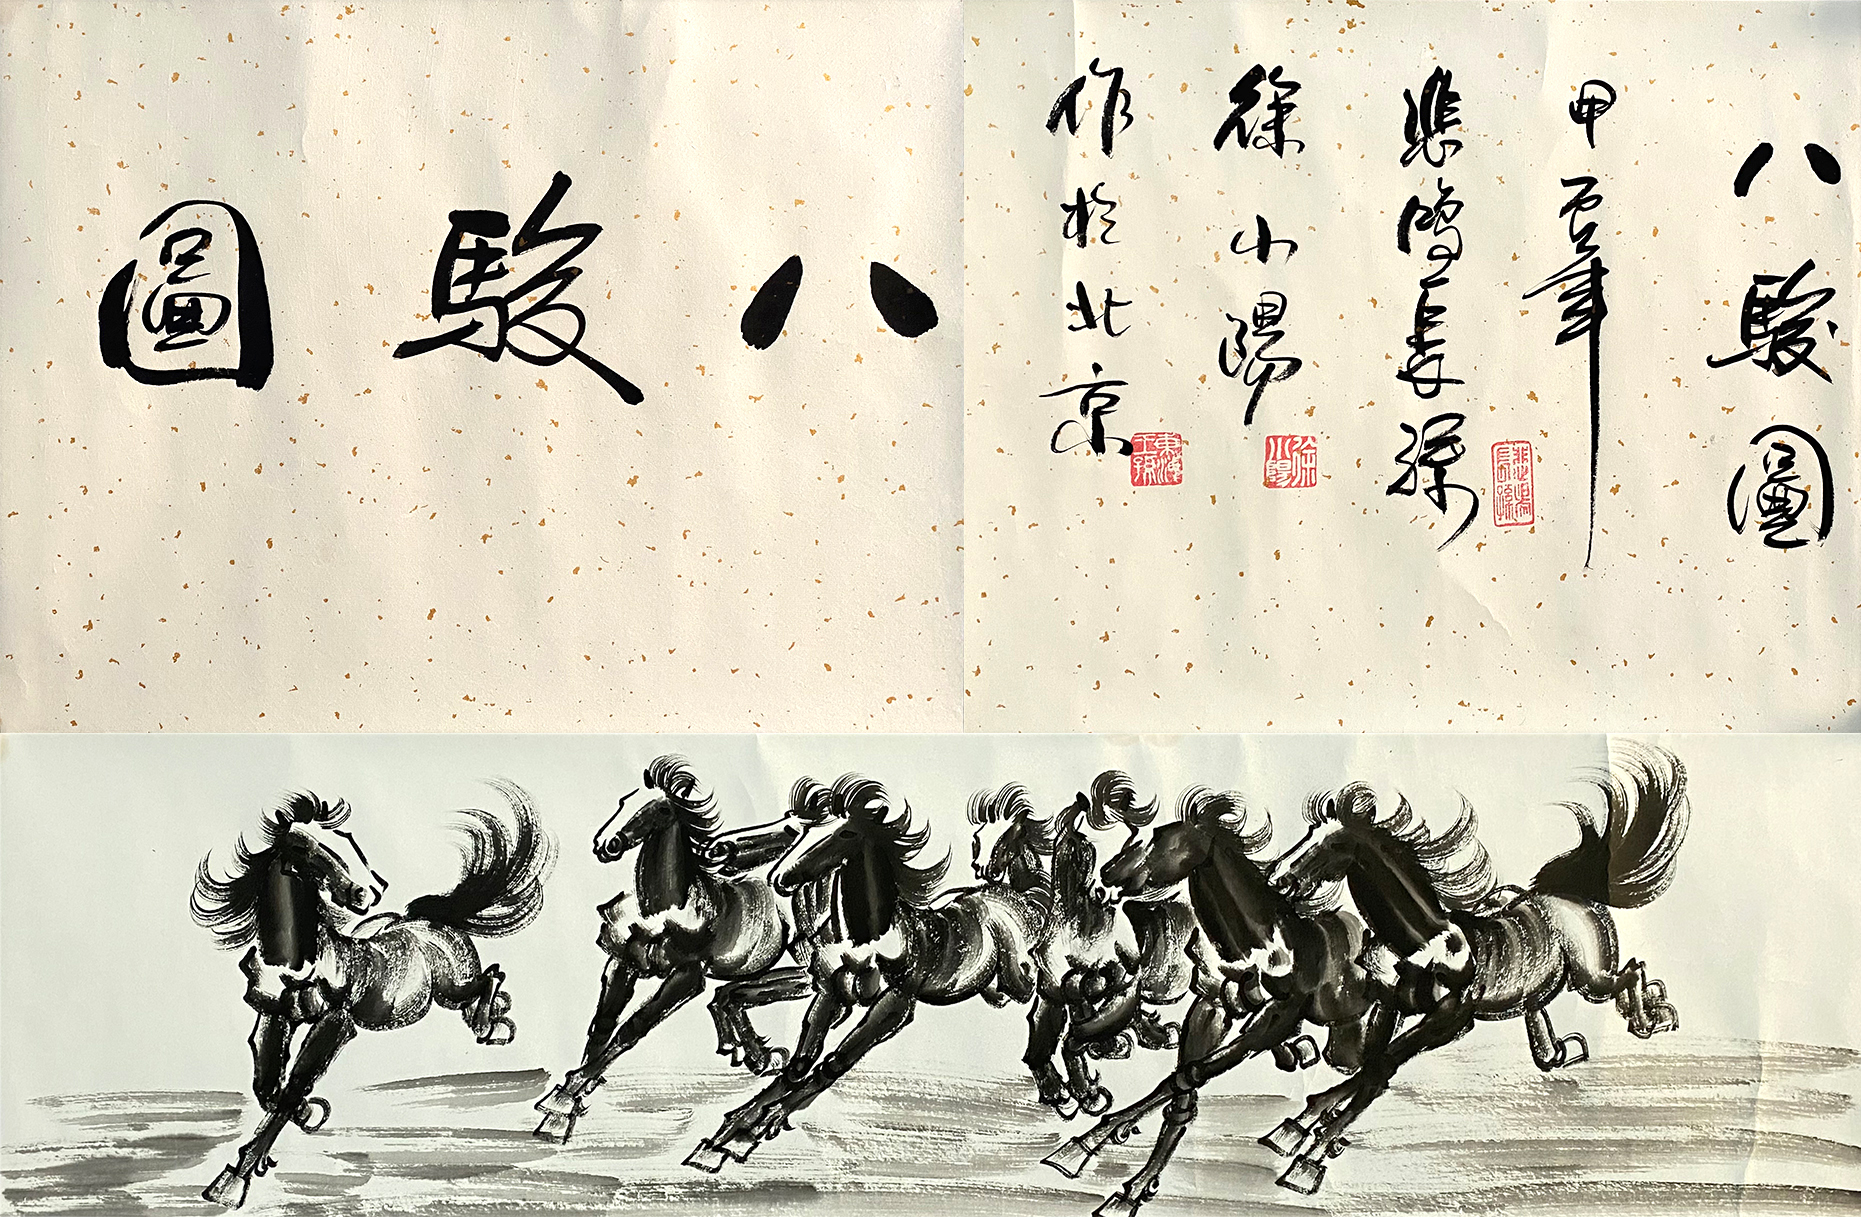 八駿圖
八駿圖
甲辰年
悲鴻長孫
徐小陽
作於北京
悲鴻長孫
徐小陽
東海王孫